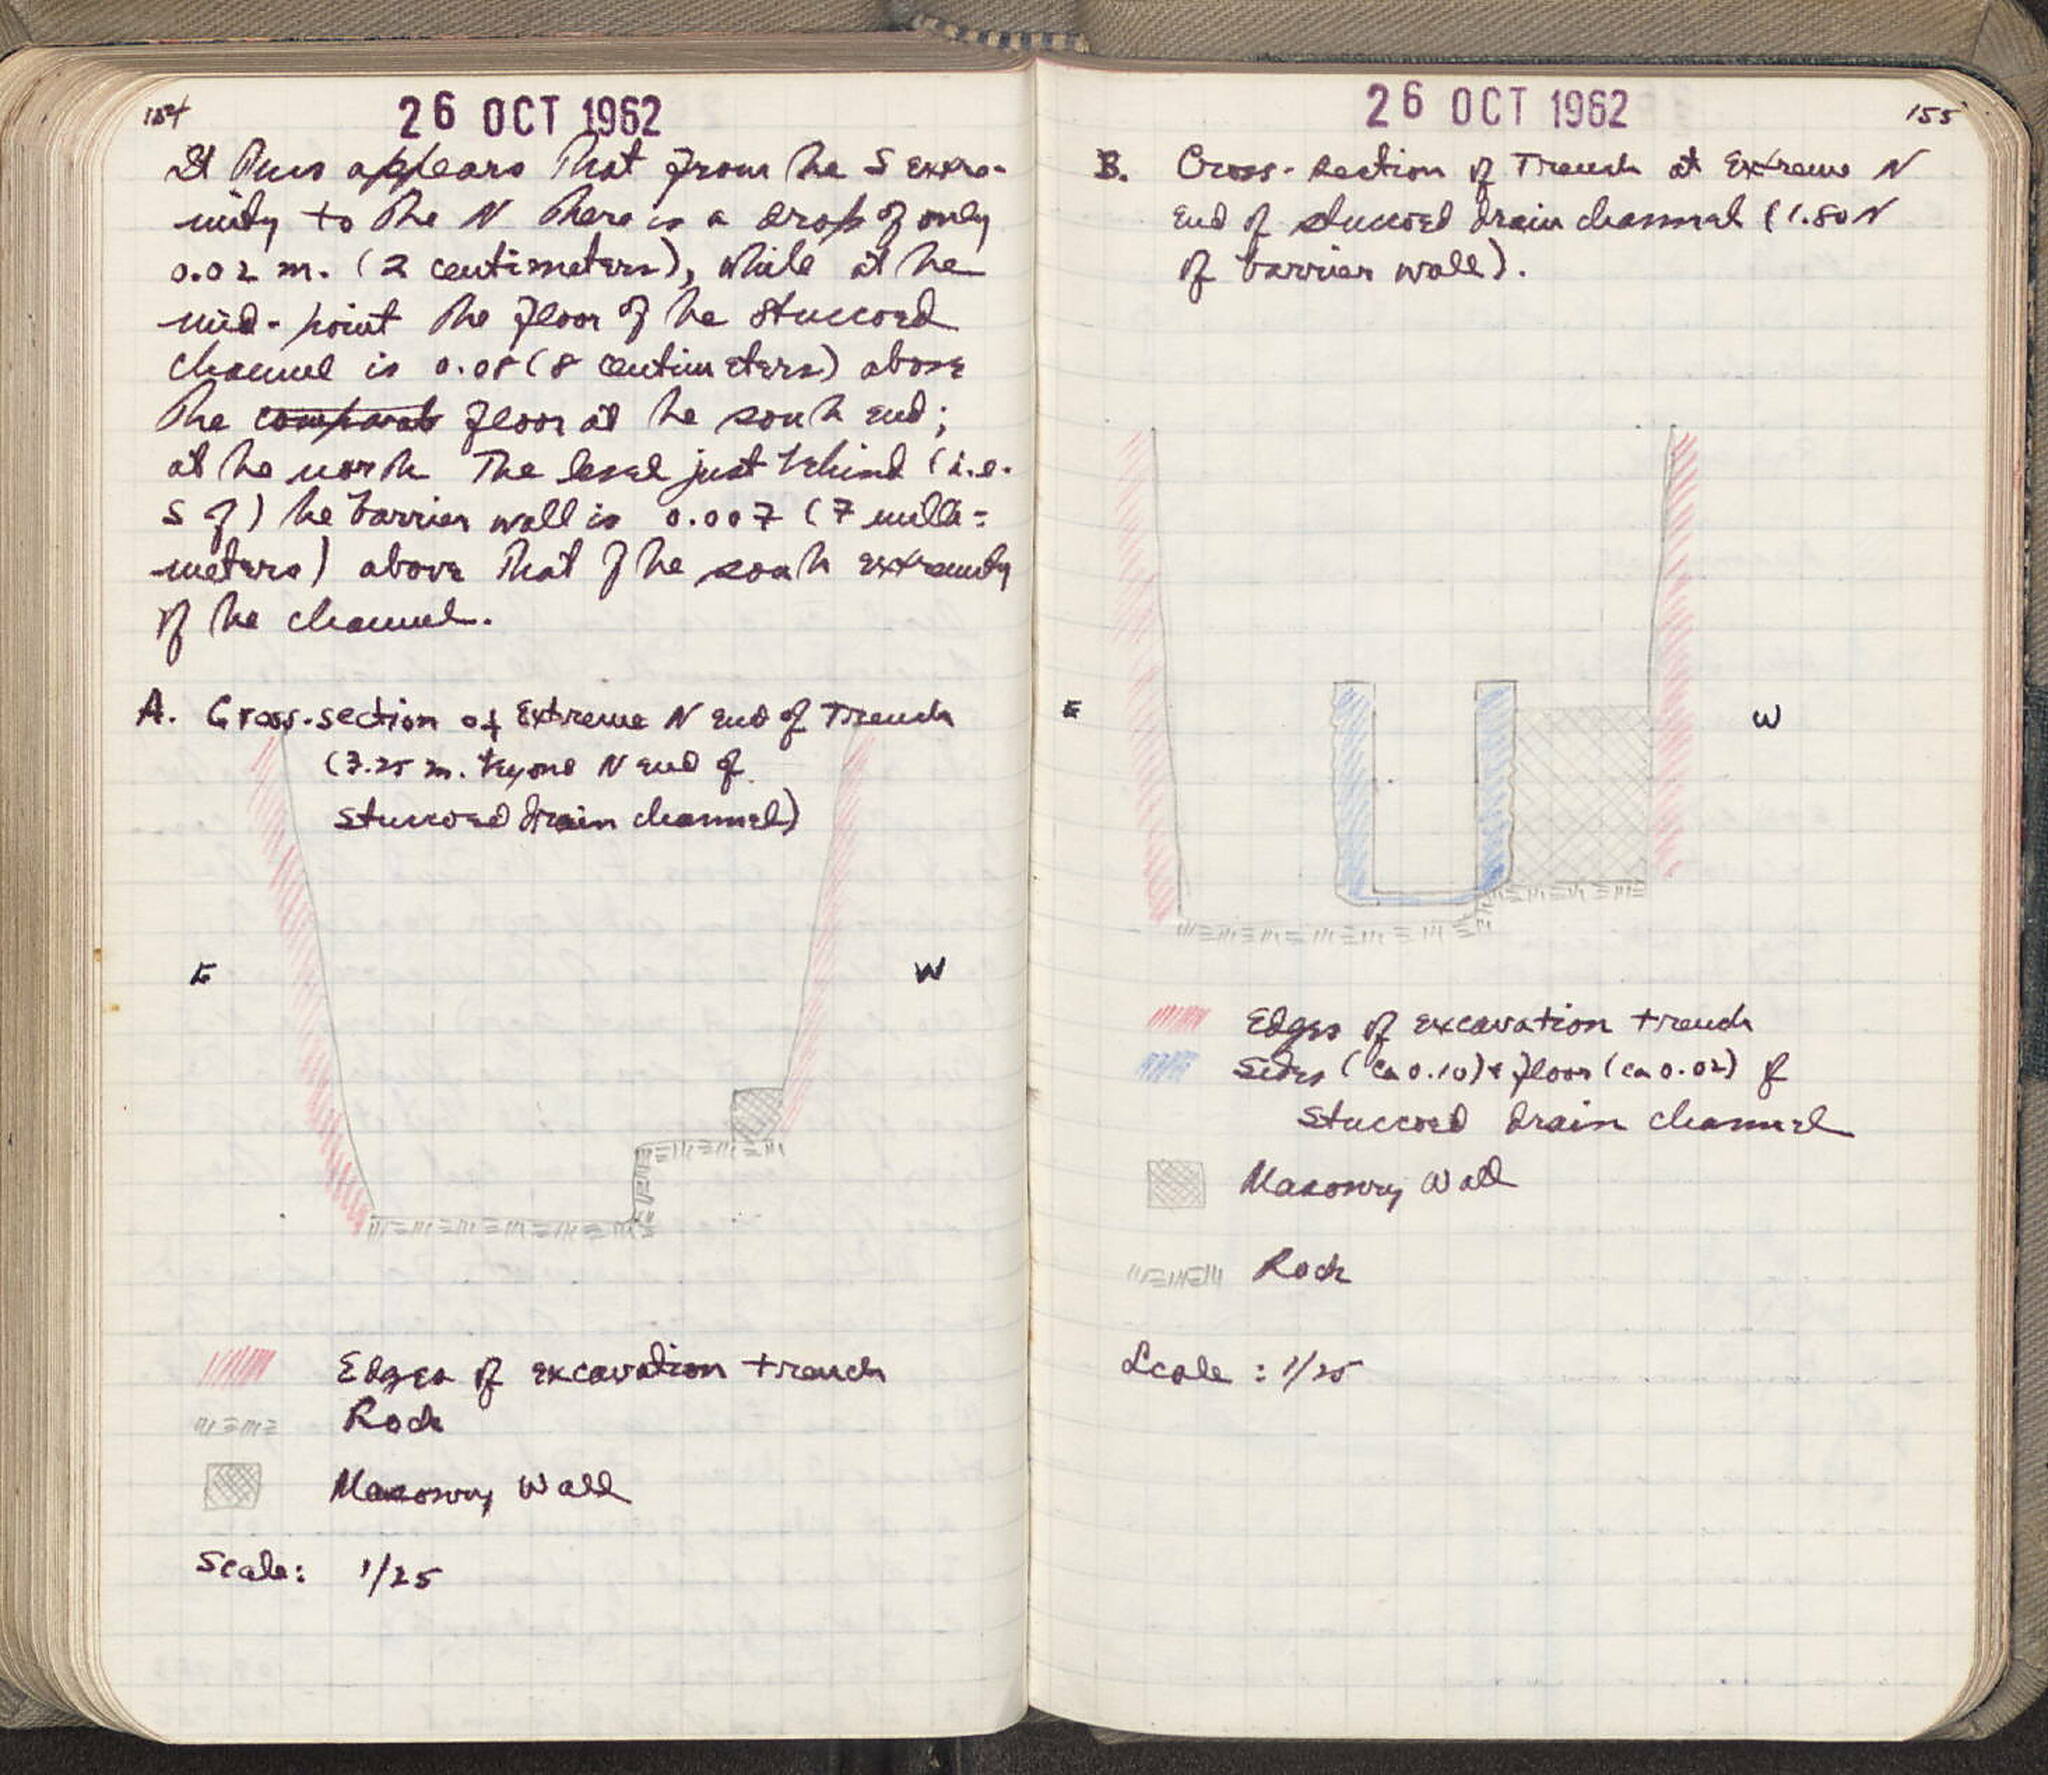 154
26 OCT 1962
It thus appears that from the S extre-
mity to the N there is a drop of only
0.02 m. (2 centimeters), while at the
mid-point the floor of the stuccoed
channel is 0.08 (8 centimeters) above
the comparat floor at the south end;
at the north the level just behind (i.e.
S of) the barrier wall is 0.007 (7 milli-
meters) above that of the south extremity
of the channel.
A. Cross-section of Extreme N end of Trench
(7.25 m. beyond N end of
stuccoed drain channel)
E
W
Edges of excavation trench
Rock
Masonry Wall
Scale: 1/25
26 OCT 1962
155
B. Cross-section of Trench at Extreme N
end of stuccoed drain channel (1.80 N
of barrier wall).
E
W
Edges of excavation trench
Sides (ca 0.10) + floor (ca 0.02) of
stuccoed drain channel
Masonry Wall
Rock
Scale: 1/25